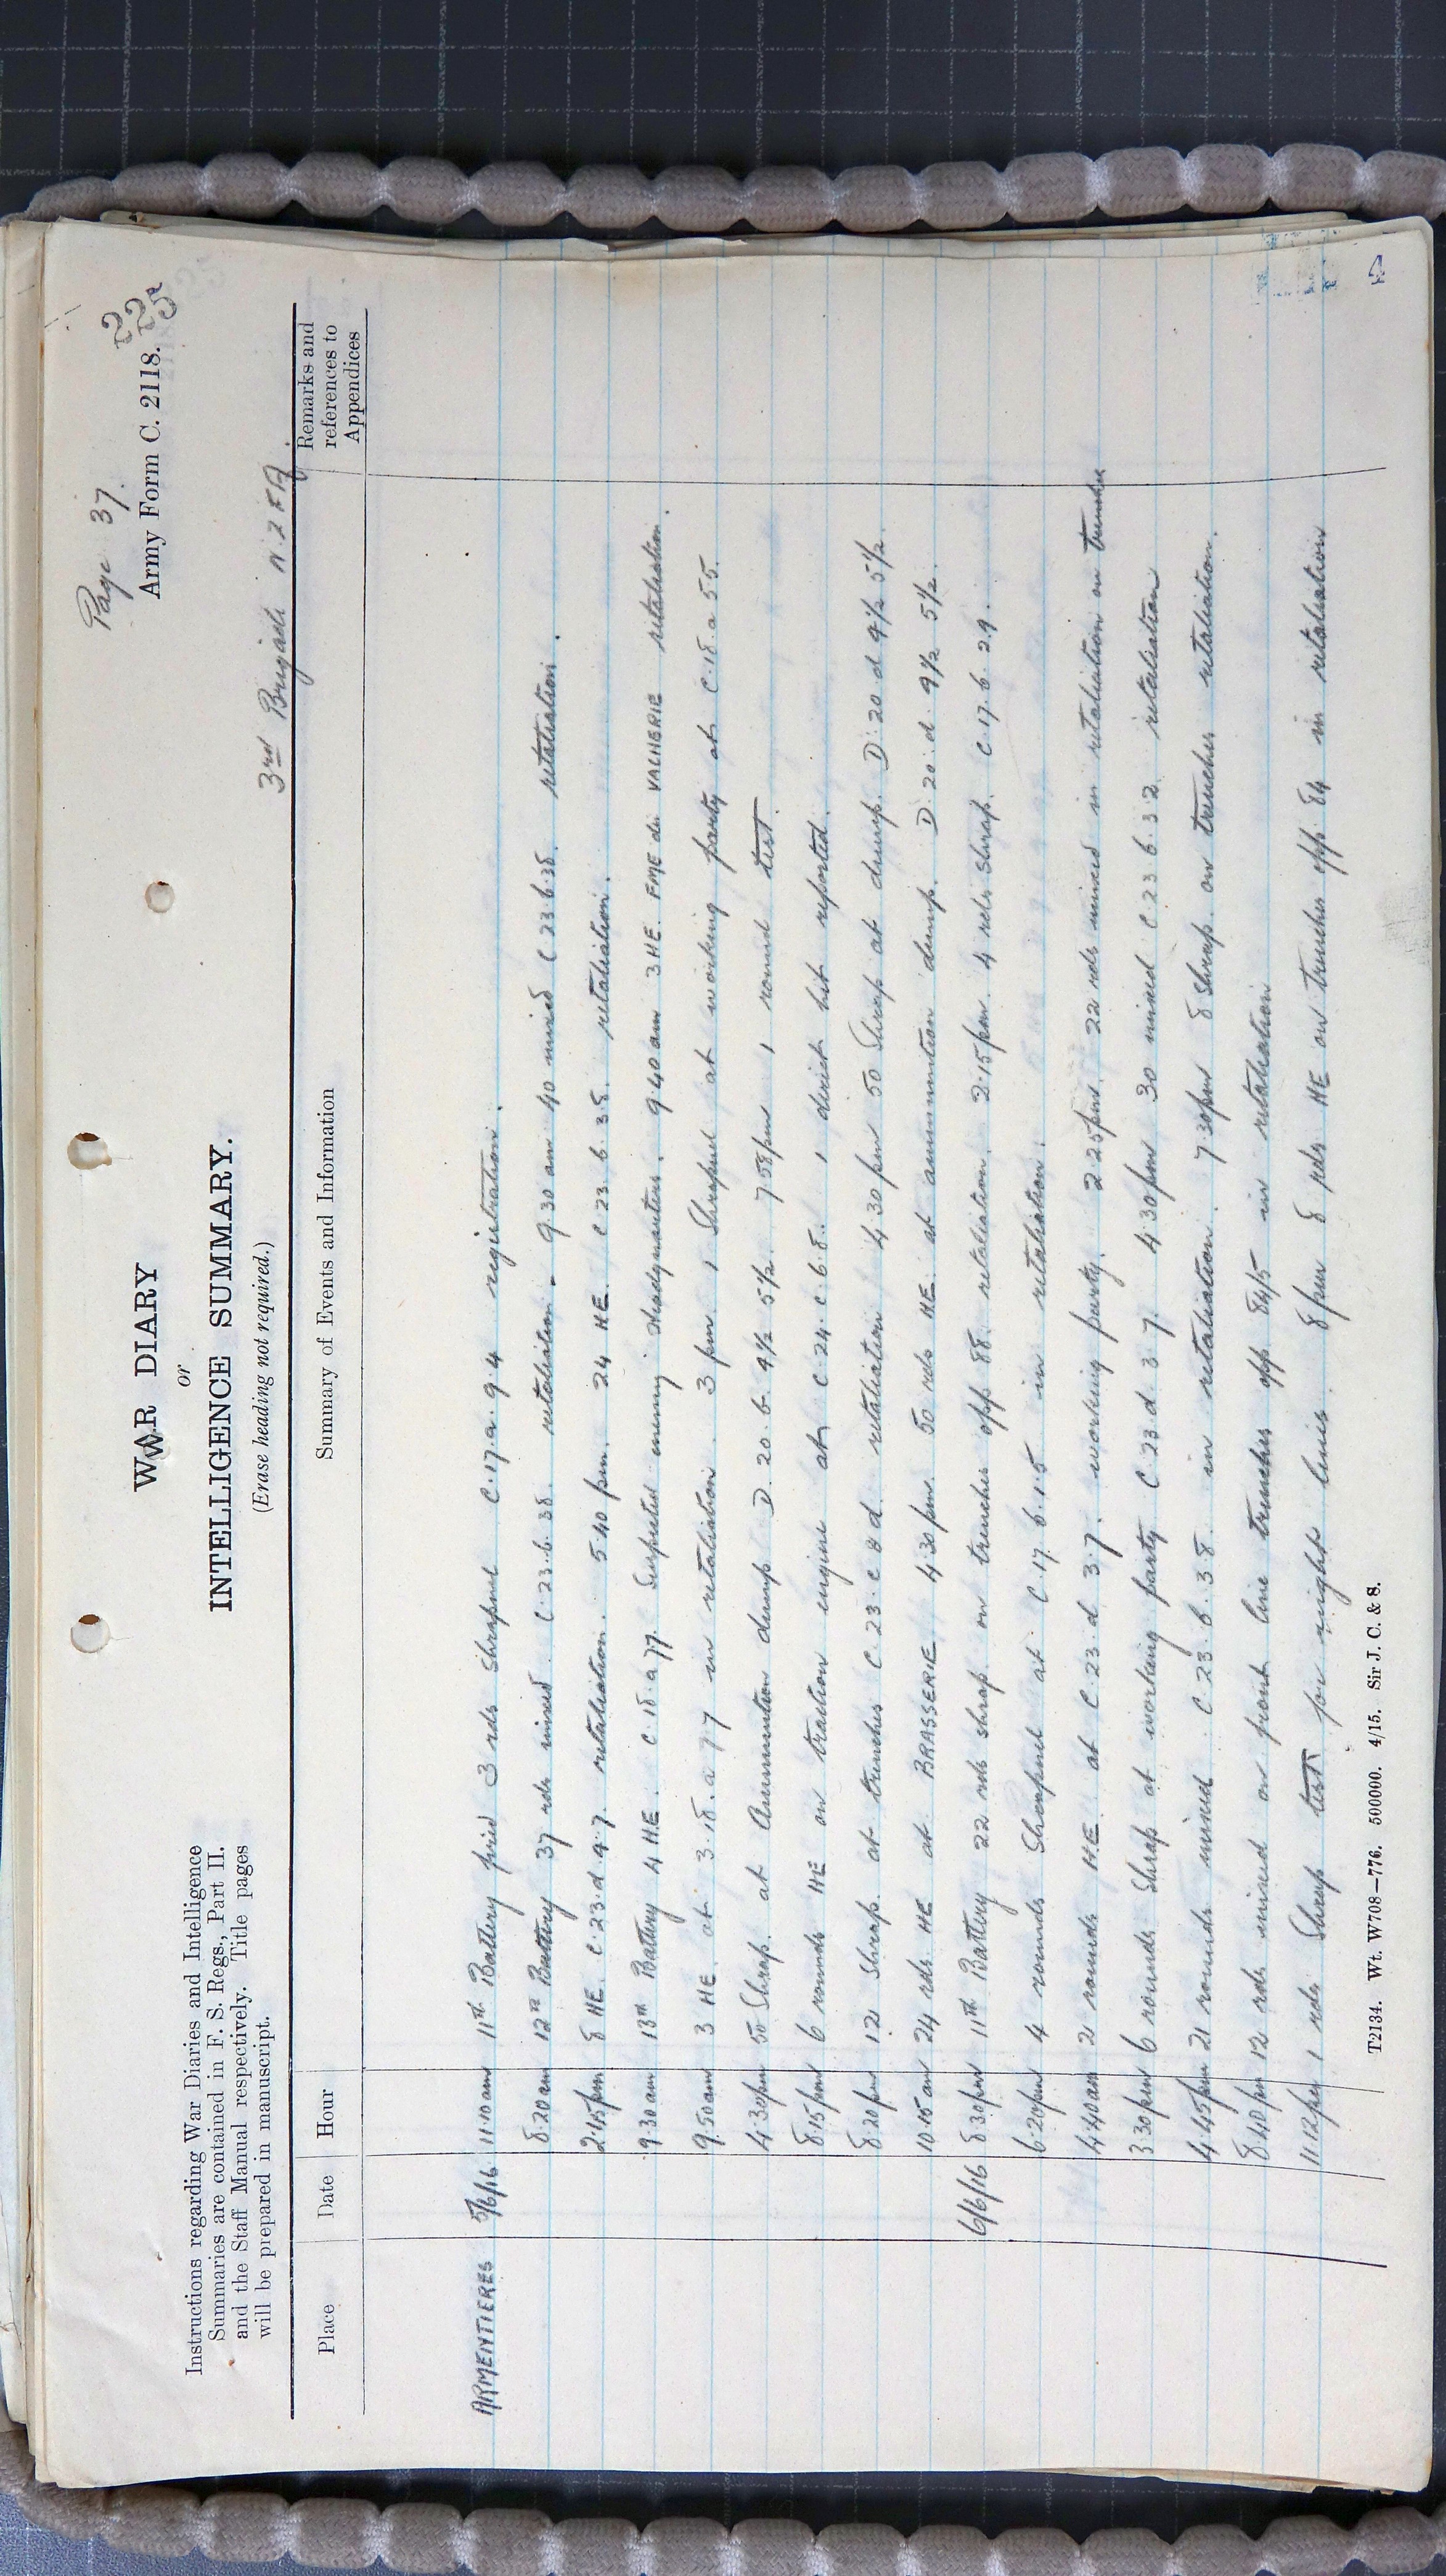 Page 37.
225
Army Form C. 2118.
WAR DIARY
or
INTELLIGENCE SUMMARY.
(Erase heading not required.)
Instructions regarding War Diaries and Intelligence
Summaries are contained in F. S. Regs., Part II.
and the Staff Manual respectively. Title pages
will be prepared in manuscript.
3rd Brigade NZFA.
Place Date Hour Summary of Events and Information Remarks and references to Appendices
ARMENTIERES 5/6/16 11.10 am 11th Battery fired 3 rds Shrapnel C.17.a.9.4 registration.
8.20 am 12th Battery 37 rds mixed C.23.b.38. retaliation - 9.30 am 40 mixed C 23.b.38. retaliation.
2.15 pm 8 HE. C.23.d.4.7. retaliation. 5.40 pm. 24 HE. C.23.b.38. retaliation.
9.30 am 13th Battery 4 HE. C.18.a.77. Suspected enemy Headquarters. 9.40 am 3 HE. FME de VALHERIE retaliation.
9.50 am 3 HE. at 3.18.a.7.7 in retaliation. 3 pm 1 Shrapnel at working party at C.18.a.55.
4.30 pm 50 Shrap. at Ammunition dump D.20.b.4½ 5½. 7.58 pm 1 round test.
8.15 pm 6 rounds HE on traction engine at C.24.c.6.8. 1 direct hit reported.
8.20 pm 12 Shrap. at trenches C.23.c & d. retaliation 4.30 pm 50 Shrap at dump. D.20.d 4½ 5½.
10.15 am 24 rds HE at BRASSERIE 4.30 pm. 50 rds HE. at ammunition dump. D.20.d. 4½ 5½.
6/6/16 8.30 pm 11th Battery 22 rds shrap. on trenches opp 88. retaliation. 2.15 pm. 4 rds shrap. C.17.b.2.9.
6.20 pm 4 rounds Shrapnel at C.17.b.1.5 in retaliation.
4.40 am 2 rounds HE. at C.23.d 3.7. working party. 2.25 pm. 22 rds mixed in retaliation on trenches
3.30 pm 6 rounds Shrap at working party C.23.d.3.7. 4.30 pm 30 mixed C.23.b.3.2. retaliation
4.45 pm 21 rounds mixed C.23.b.3.8. in retaliation. 7.30 pm 8 Shrap. on trenches retaliation.
8.40 pm 12 rds mixed on front line trenches opp 84/5 in retaliation
11.12 pm 1 rds Shrap test for night lines. 8 pm 8 rds HE on trenches opp. 84 in retaliation
T2134. Wt. W708—776. 500000. 4/15. Sir J. C. & S.